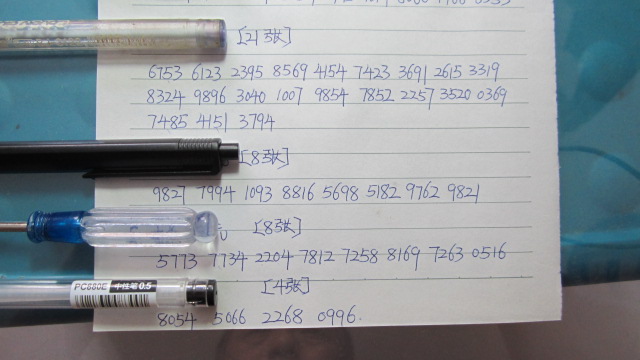 [21张]
6753 6123 2395 8569 4154 7423 3691 2615 3319
8324 9896 3040 1007 9854 7852 2257 3520 0369
7485 4151 3794
[8张]
9827 7994 1093 8816 5698 5182 9762 9821
元 [8张]
5773 7734 2204 7812 7258 8169 7263 0516
PC880E 中性笔0.5 [4张]
8054 5066 2268 0996.